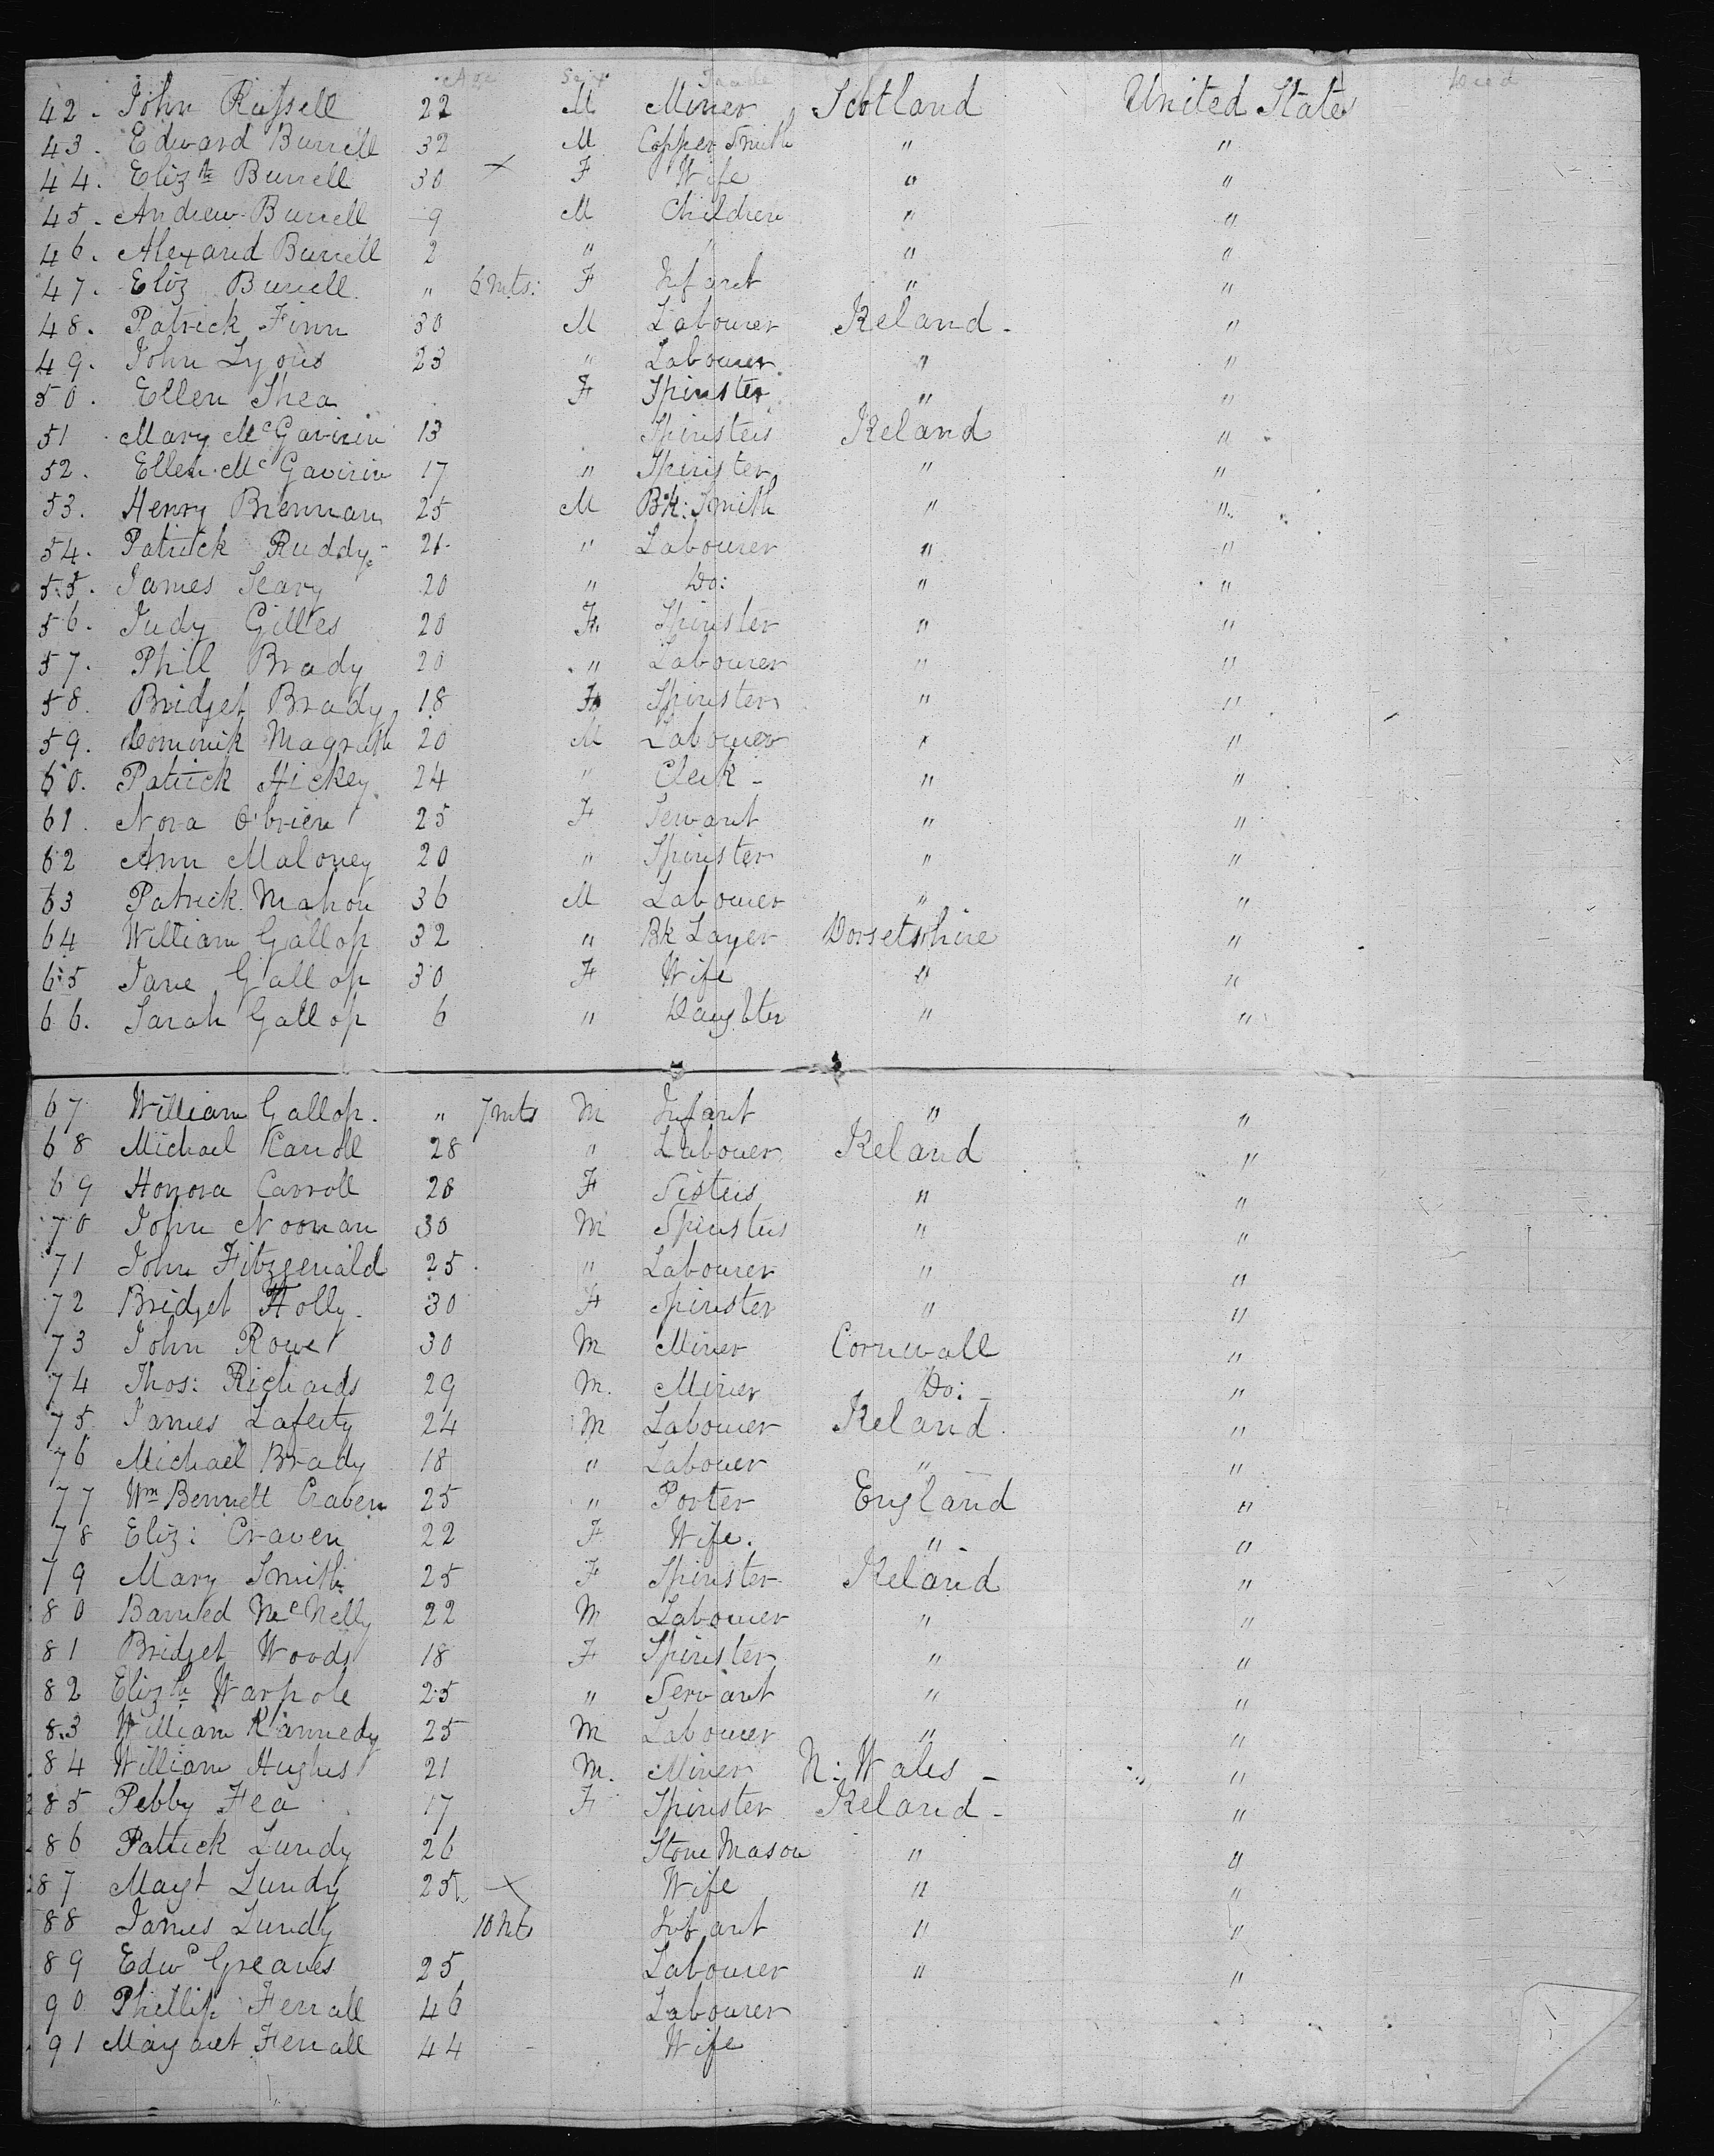 Age Sex Trade Died
42. John Russell 22 M Miner Scotland United States
43. Edward Burrell 32 M Copper Smith " "
44. Elizth Burrell 30 × F Wife " "
45. Andrew Burrell 9 M Children " "
46. Alexand Burrell 2 " " " "
47. Eliz Burrell. " 6 Mts: F Infant " "
48. Patrick Finn 30 M Labourer Ireland - "
49. John Lyons 23 " Labourer " "
50. Ellen Shea F Spinster " "
51 Mary McGavirin 13 Spinsters Ireland "
52. Ellen McGavirin 17 " Spinster " "
53. Henry Brennan 25 M Bk: Smith " "
54. Patrick Ruddy 21 " Labourer " "
55. James Seary 20 " Do: " "
56. Judy Gilles 20 F Spinster " "
57. Phill Brady 20 " Labourer " "
58. Bridget Brady 18 F Spinster " "
59. Dominik Magrath 20 M Labourer " "
60. Patrick Hickey 24 " Clerk - " "
61. Nora O'brien 25 F Servant " "
62 Ann Maloney 20 " Spinster " "
63 Patrick Mahon 36 M Labourer " "
64 William Gallop 32 " Bk Layer Dorsetshire "
65 Jane Gallop 30 F Wife " "
66. Sarah Gallop 6 " Daughter " "
67 William Gallop. " 7 mts M Infant " "
68 Michael Karroll 28 " Labouer Ireland "
69 Honora Carroll 28 F Sisters " "
70 John Noonan 30 M Spinsters " "
71 John Fitzgerald 25 " Labourer " "
72 Bridget Holly. 30 F Spinster " "
73 John Rowe 30 M Miner Cornwall "
74 Thos: Richards 29 M. Miner Do: - "
75 James Laferty 24 M Labouer Ireland. "
76 Michael Brady 18 " Labouer " "
77 Wm Bennett Craben 25 " Porter England "
78 Eliz: Craven 22 F Wife. " "
79 Mary Smith 25 F Spinster Ireland "
80 Barned McNelly 22 M Labouer " "
81 Bridget Woods 18 F Spinster " "
82 Elizth Warpole 25 " Servant " "
83 William Kannedy 25 M Labouer " "
84 William Hughes 21 M. Miner N: Wales - "
85 Pebby Fea 17 F Spinster Ireland - "
86 Patrick Lundy 26 Stone Mason " "
87 Mayt Lundy 25 × Wife " "
88 James Lundy 10 Mts Infant " "
89 Edwd Greaves 25 Labourer " "
90 Phillip Ferrall 46 Labourer
91 Margaret Ferrall 44 - Wife